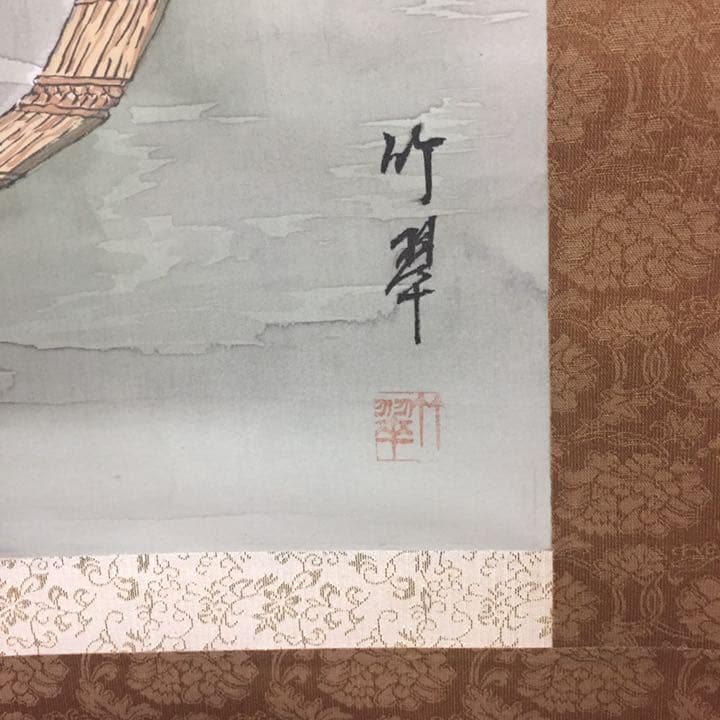 竹翠
竹翠